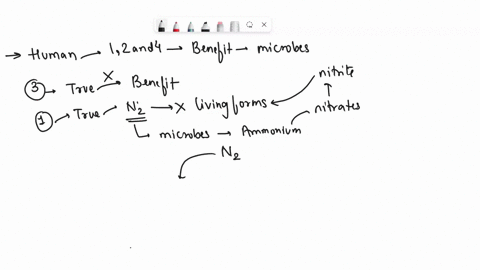 → Human → 1,2 and 4 → Benefit → microbes
③ → True x→ Benefit
nitrite
① → True → N2 → x living forms
nitrates
microbes → Ammonium
N2